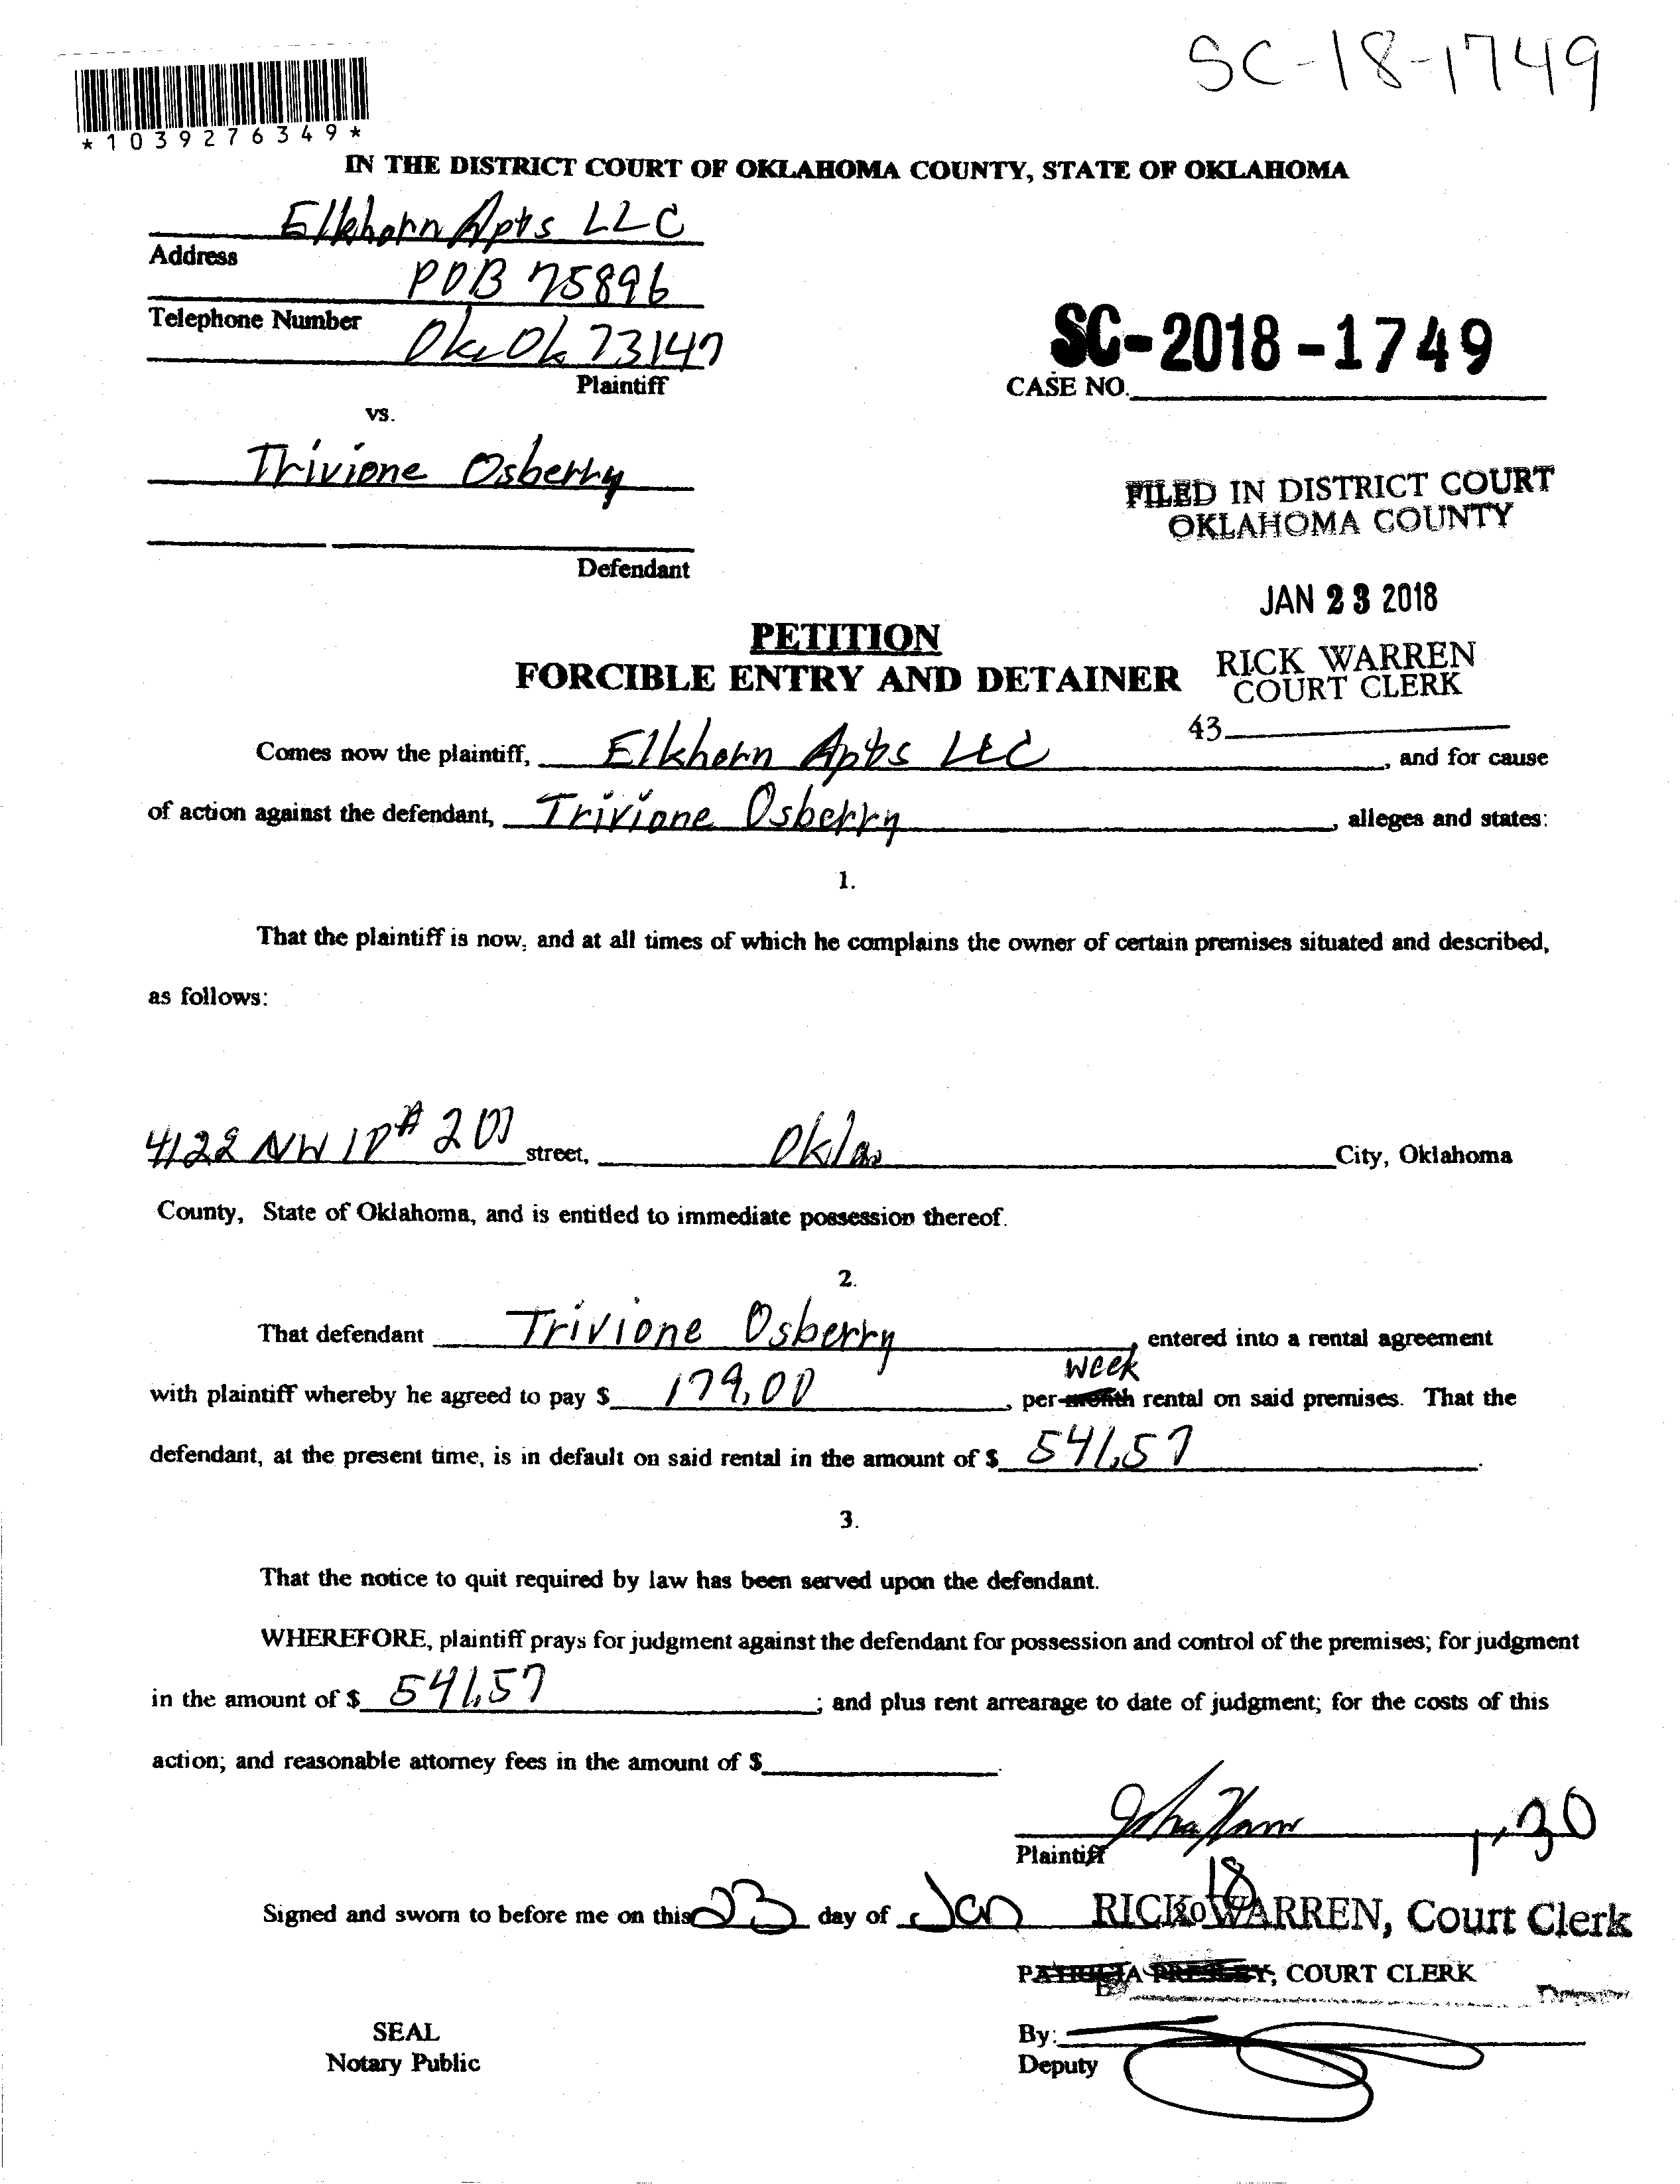 SC-18-1749
*1039276349*
IN THE DISTRICT COURT OF OKLAHOMA COUNTY, STATE OF OKLAHOMA
Elkhorn Apts LLC
Address
POB 75896
Telephone Number
Okc Ok 73147
Plaintiff
SC-2018-1749
CASE NO.
vs.
Trivione Osberry
Defendant
FILED IN DISTRICT COURT
OKLAHOMA COUNTY
JAN 23 2018
RICK WARREN
COURT CLERK
43
PETITION
FORCIBLE ENTRY AND DETAINER
Comes now the plaintiff, Elkhorn Apts LLC, and for cause
of action against the defendant, Trivione Osberry, alleges and states:
1.
That the plaintiff is now, and at all times of which he complains the owner of certain premises situated and described,
as follows:
4122 NW 10 # 207 street, Okla City, Oklahoma
County, State of Oklahoma, and is entitled to immediate possession thereof.
2.
That defendant Trivione Osberry, entered into a rental agreement
week
with plaintiff whereby he agreed to pay $ 179.00, per month rental on said premises. That the
defendant, at the present time, is in default on said rental in the amount of $ 541.57.
3.
That the notice to quit required by law has been served upon the defendant.
WHEREFORE, plaintiff prays for judgment against the defendant for possession and control of the premises; for judgment
in the amount of $ 541.57; and plus rent arrearage to date of judgment; for the costs of this
action; and reasonable attorney fees in the amount of $
1.30
Plaintiff
Signed and sworn to before me on this 23 day of Jan 18
RICK WARREN, Court Clerk
PATRICIA PRESLEY, COURT CLERK
Deputy
SEAL
Notary Public
By:
Deputy